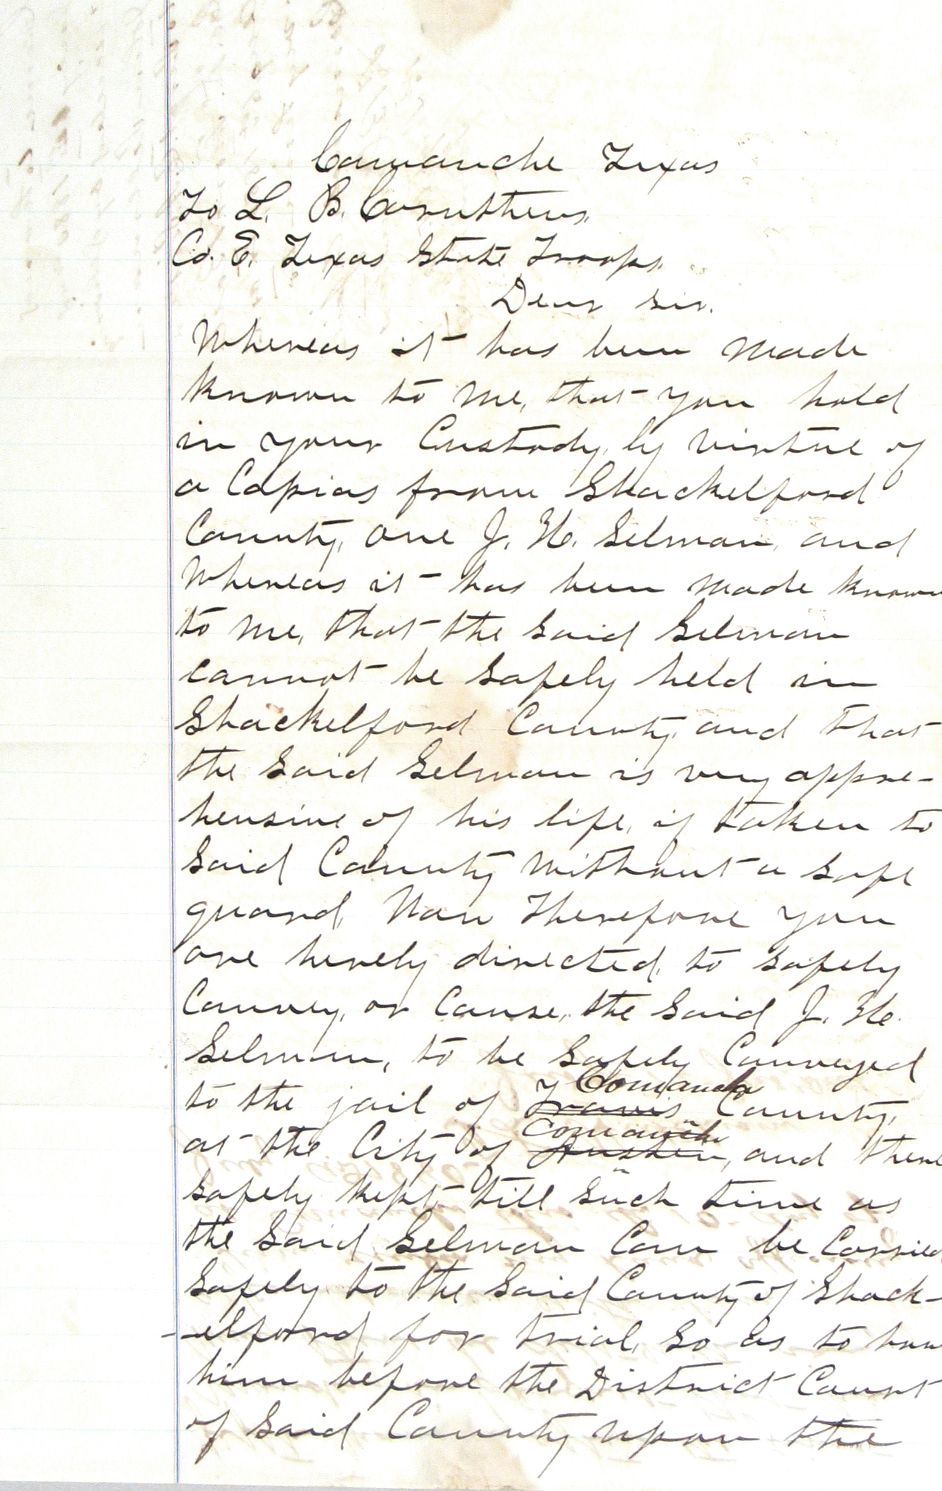 Comanche Texas
To L. B. Caruthers,
Co. E. Texas State Troops,
Dear Sir.
Whereas it has been made
known to me, that you hold
in your Custody, by virtue of
a Capias from Shackelford
County, one J. H. Selman, and
Whereas it has been made known
to me, that the said Selman
cannot be safely held in
Shackelford County, and that
the said Selman is very appre-
hensive of his life, if taken to
said County without a safe
guard, Now Therefore you
are hereby directed, to safely
Convey, or Cause, the said J. H.
Selman, to be safely Conveyed
Comanche
to the jail of Travis County,
Comanche
at the City of Austin, and there
safely kept till such time as
the said Selman Can be Carried
safely to the said County of Shack-
-elford for trial, so as to have
him before the District Court
of said County upon the